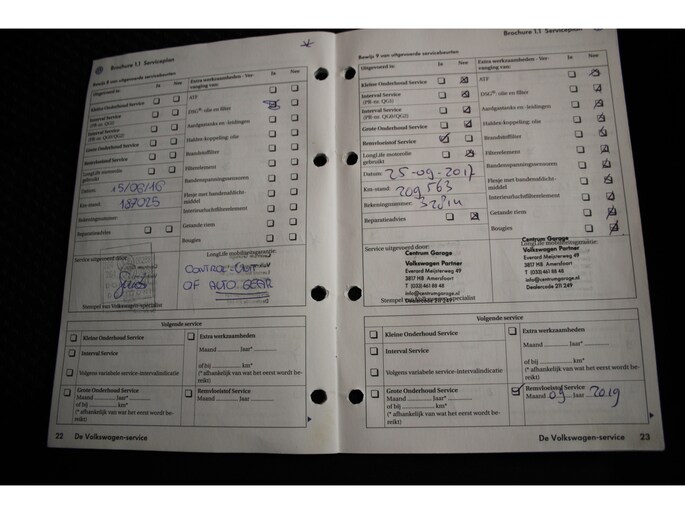 Brochure 1.1 Serviceplan
Bewijs 8 van uitgevoerde servicebeurten
Uitgevoerd is: Ja Nee
Kleine Onderhoud Service
Interval Service
(PR-nr. QG1)
Interval Service
(PR-nr. QG0/QG2)
Grote Onderhoud Service
Remvloeistof Service
LongLife motorolie
gebruikt
Datum: 15/06/16
Km-stand: 187025
Rekeningnummer:
Reparatieadvies
Extra werkzaamheden - Ver-
vanging van: Ja Nee
ATF
DSG®-olie en filter
Aardgastanks en -leidingen
Haldex-koppeling: olie
Brandstoffilter
Filterelement
Bandenspanningssensoren
Flesje met bandenafdicht-
middel
Interieurluchtfilterelement
Getande riem
Bougies
Service uitgevoerd door:
Stempel van Volkswagen-specialist
LongLife mobiliteitsgarantie:
OF AUTO
Volgende service
Kleine Onderhoud Service
Interval Service
Volgens variabele service-intervalindicatie
Extra werkzaamheden
Maand ......... Jaar*
of bij .......... km*
(* afhankelijk van wat het eerst wordt be-
reikt)
Grote Onderhoud Service
Maand ......... Jaar*
of bij .......... km*
(* afhankelijk van wat het eerst wordt be-
reikt)
Remvloeistof Service
Maand ......... Jaar
22 De Volkswagen-service
Brochure 1.1 Serviceplan
Bewijs 9 van uitgevoerde servicebeurten
Uitgevoerd is: Ja Nee
Kleine Onderhoud Service
Interval Service
(PR-nr. QG1)
Interval Service
(PR-nr. QG0/QG2)
Grote Onderhoud Service
Remvloeistof Service
LongLife motorolie
gebruikt
Datum: 25-09-2017
Km-stand: 209563
Rekeningnummer:
Reparatieadvies
Extra werkzaamheden - Ver-
vanging van: Ja Nee
ATF
DSG®-olie en filter
Aardgastanks en -leidingen
Haldex-koppeling: olie
Brandstoffilter
Filterelement
Bandenspanningssensoren
Flesje met bandenafdicht-
middel
Interieurluchtfilterelement
Getande riem
Bougies
Service uitgevoerd door:
Centrum Garage
Volkswagen Partner
Everard Meijsterweg 49
3817 HB Amersfoort
T (033) 461 88 48
info@centrumgarage.nl
Dealercode 211 249
Stempel van Volkswagen-specialist
LongLife mobiliteitsgarantie:
Centrum Garage
Volkswagen Partner
Everard Meijsterweg 49
3817 HB Amersfoort
T (033) 461 88 48
info@centrumgarage.nl
Dealercode 211 249
Volgende service
Kleine Onderhoud Service
Interval Service
Volgens variabele service-intervalindicatie
Extra werkzaamheden
Maand ......... Jaar*
of bij .......... km*
(* afhankelijk van wat het eerst wordt be-
reikt)
Grote Onderhoud Service
Maand ......... Jaar*
of bij .......... km*
(* afhankelijk van wat het eerst wordt be-
reikt)
Remvloeistof Service
Maand 09 Jaar 2019
De Volkswagen-service 23